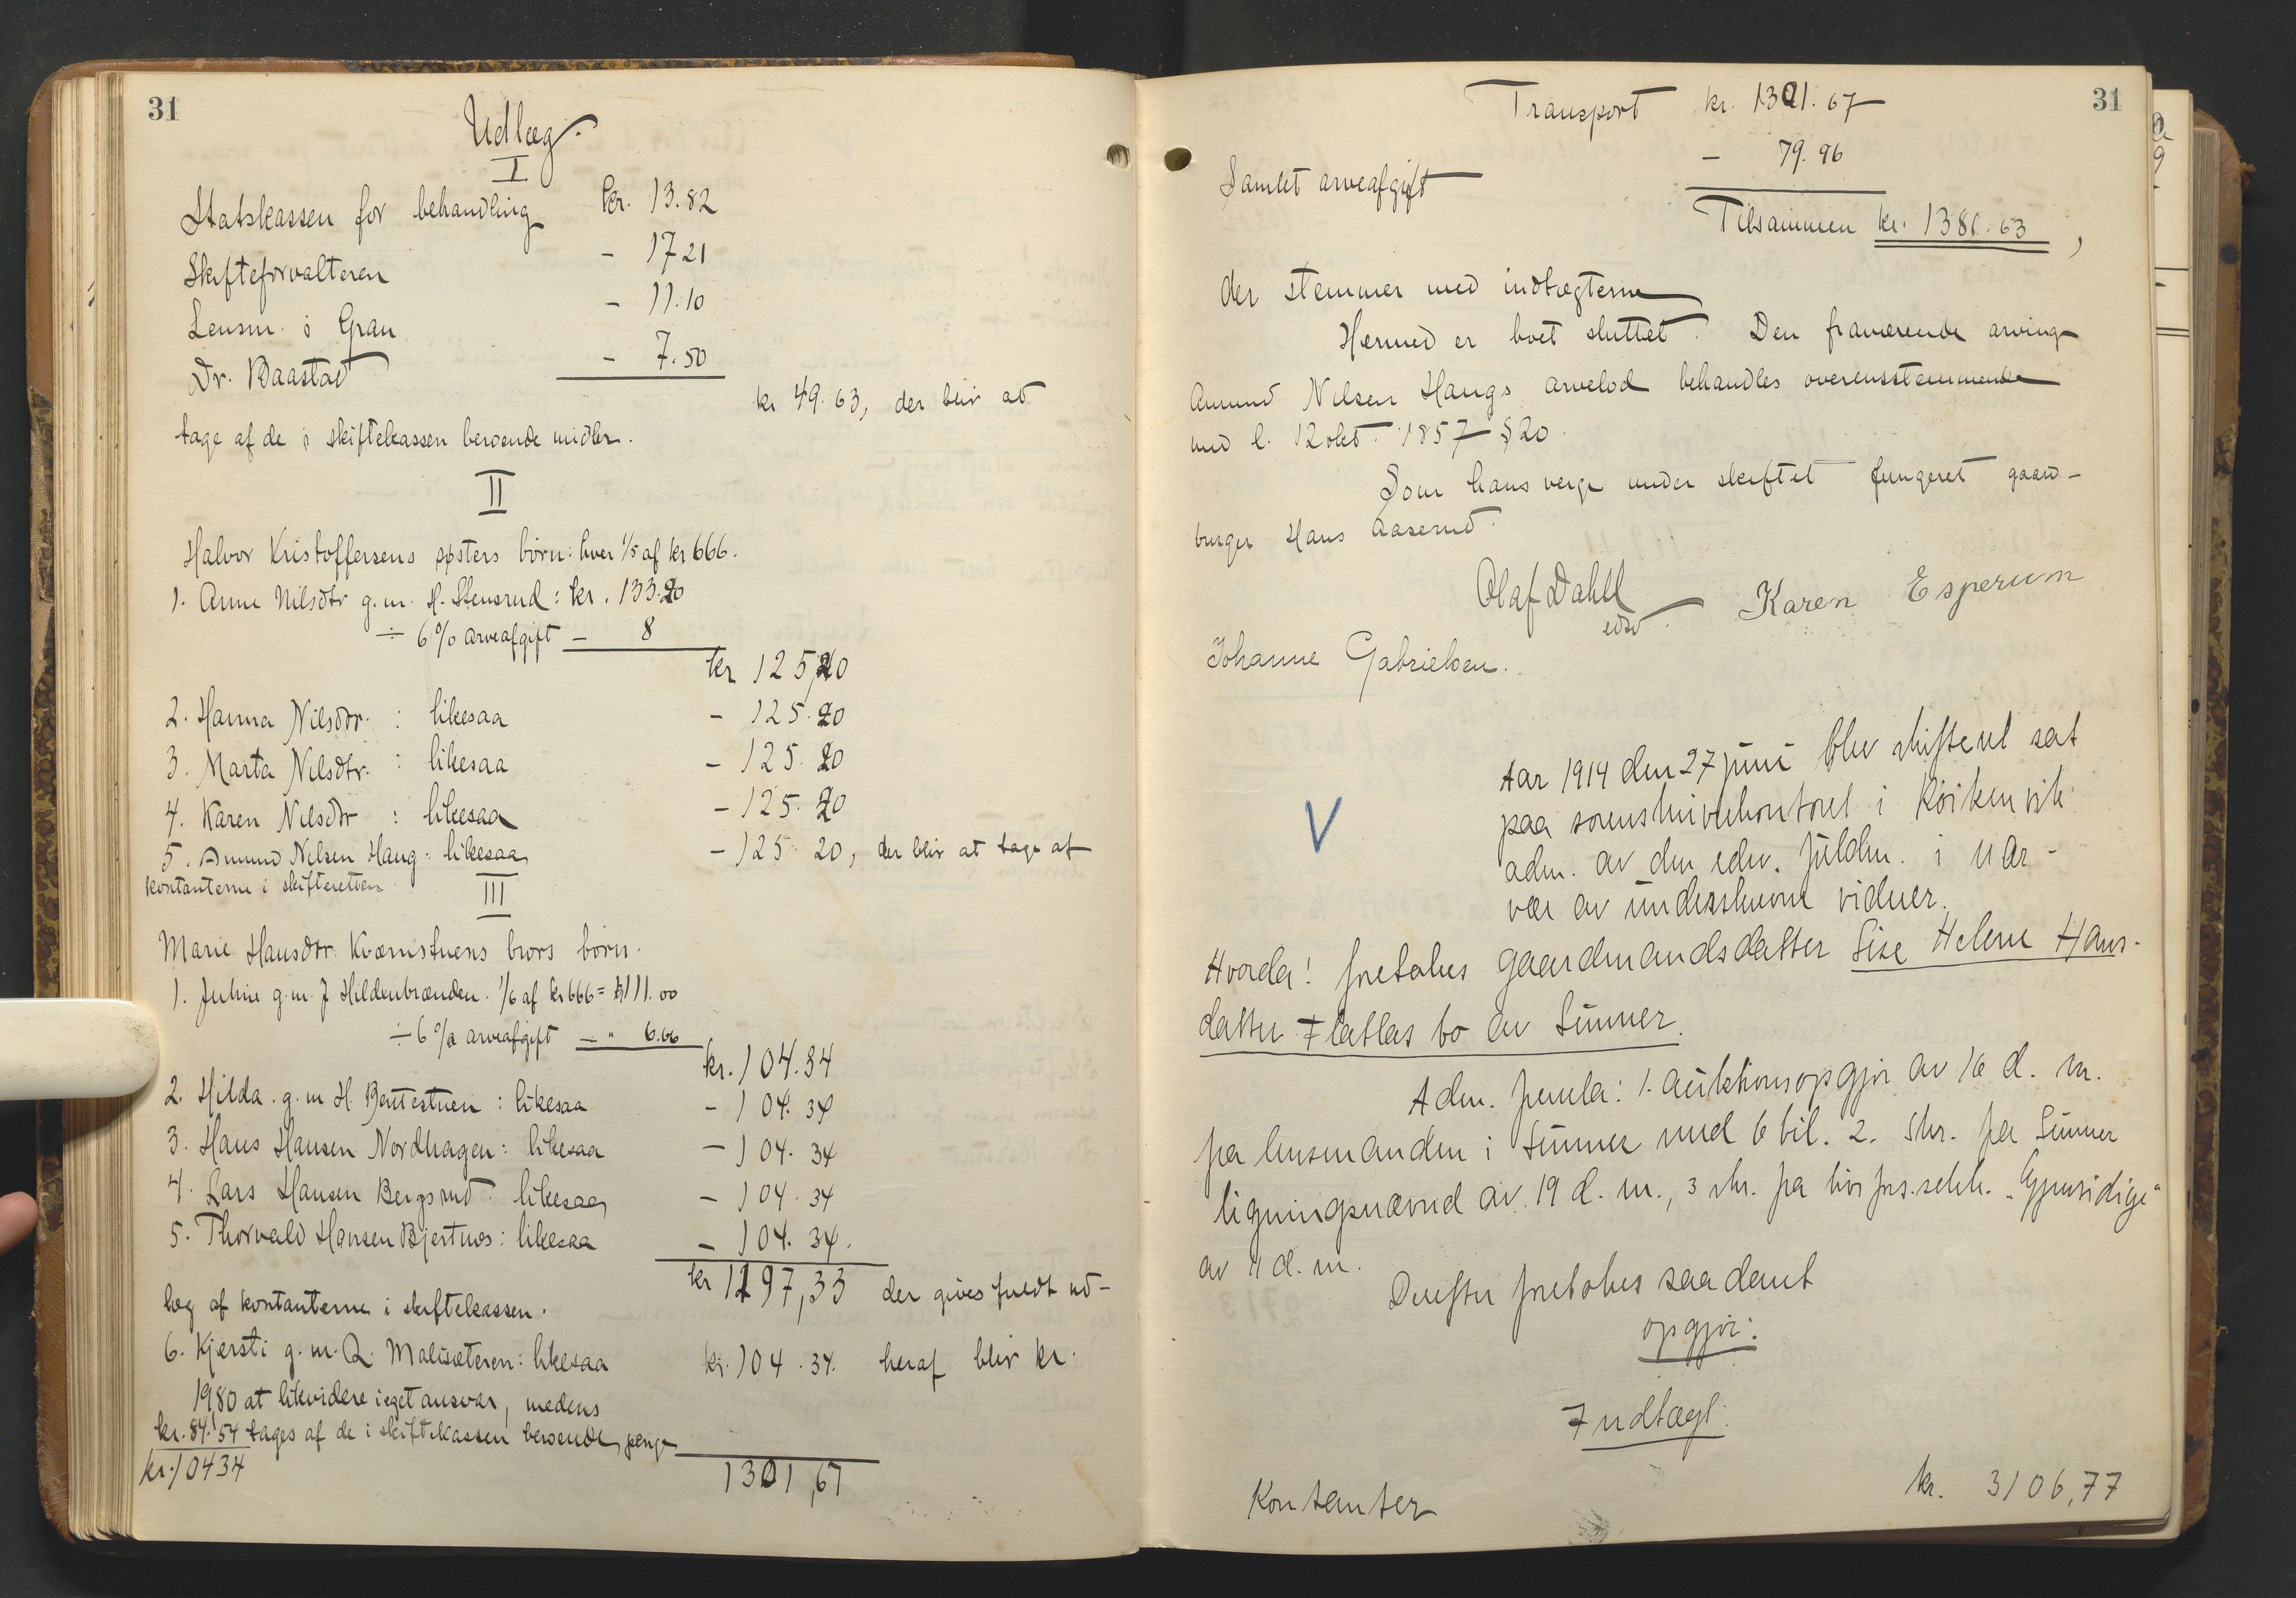 31
Udlæg.
I
Statskassen for behandling kr. 13.82
Skifteforvalteren - 17 21
Lensm. i Gran - 11.10
Dr. Baastad - 7.50
kr 49.63, der blir at
tage af de i skiftekassen beroende midler.
II
Halvor Kristoffersens søsters børn: hver 1/5 af kr 666.
1. Anne Nilsdtr g.m. H. Stensrud: kr. 133.20
÷ 6 % arveafgift - 8
kr 125,20
2. Hanna Nilsdtr. : likesaa - 125.20
3. Marta Nilsdtr. : likesaa - 125.20
4. Karen Nilsdtr : likesaa - 125.20
5. Amund Nilsen Haug: likesaa - 125 20, der blir at tage af
kontanterne i skifteretten.
III
Marie Hansdtr. Kværnstuens brors børn.
1. Julie g.m. J Hildenbrænden. 1/6 af kr 666 = kr 111.00
÷ 6 % arveafgift - " 6.66
kr. 104.34
2. Hilda g.m H. : likesaa - 104.34
3. Hans Hansen Nordhagen: likesaa - 104.34
4. Lars Hansen Bergsrud: likesaa - 104.34
5. Thorvald Hansen Bjertnæs: likesaa - 104.34.
kr 1197,33 der gives fuldt ud-
læg af kontanterne i skiftekassen.
6. Kjersti g.m. Q. Malisæteren: likesaa kr. 104.34. heraf blir kr.
19,80 at likvidere i eget ansvar, medens
kr. 84.54 tages af de i skiftekassen beroende penge
kr. 104 34
1301,67
31
Transport kr. 1301.67
Samlet arveafgift - 79.96
Tilsammen kr. 1381.63,
der stemmer med indtægterne
Hermed er boet sluttet. Den fraværende arving
Amund Nilsen Haugs arvelod behandles overensstemmende
med l. 12 okt. 1857 § 20.
Som hans verge under skiftet fungeret gaard-
bruger Hans Aaserud.
Olaf Dahll
edsv.
Karen Esperum
Johanne Gabrielsen.
V
Aar 1914 den 27 juni blev skifteret sat
paa sorenskriverkontoret i Röikenvik
adm. av den edsv. fuldm. i nær-
vær av underskrevne vidner.
Hvorda! foretokes gaardmandsdatter Lise Helene Hans-
datter Flatlas bo av Sünner.
Adm. fremla: 1. auktionsopgjör av 16 d. m.
fra lensmanden i Sünner med 6 bil. 2. skr. fra Sünner
ligningsnævnd av 19 d. m., 3 skr. fra livsfors.selsk. "Gjensidige"
av 11 d. m.
Derefter foretokes saadant
opgjör:
Indtægt:
Kontanter kr. 3106,77